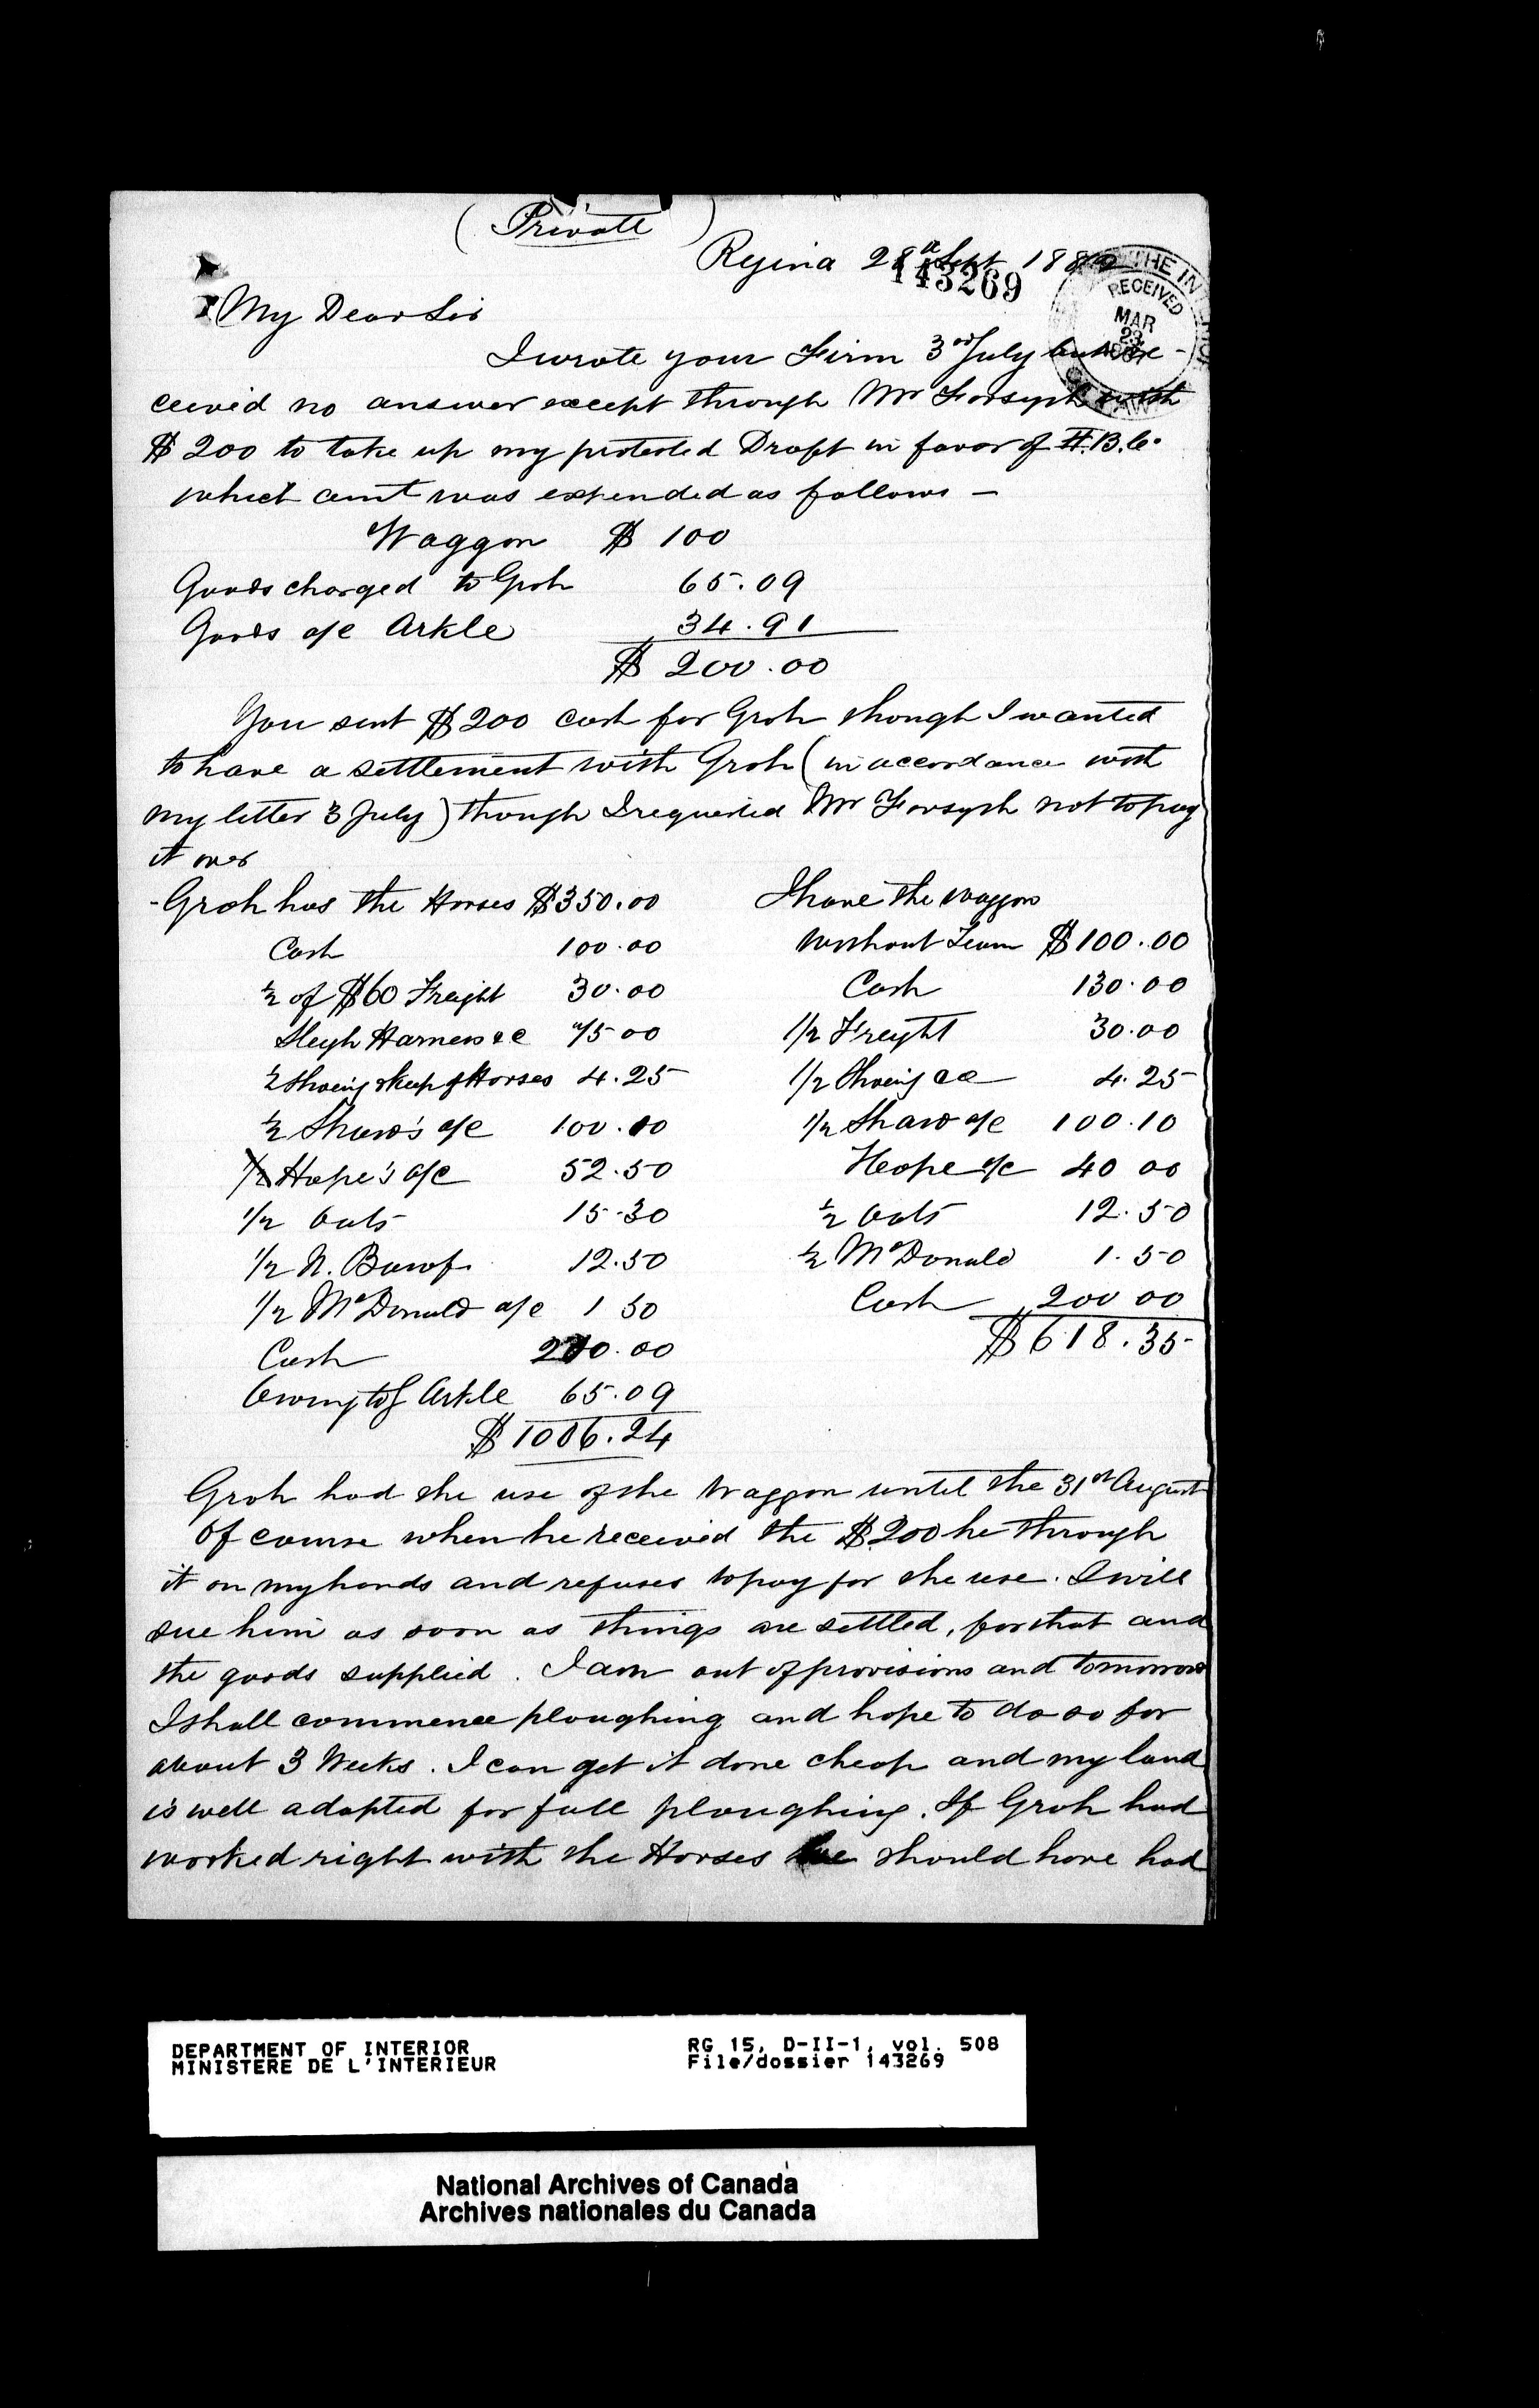 (Private)
Regina 28th Sept 188
143269
THE IN
RECEIVED
MAR
23
My Dear Sir
I wrote your Firm 3rd July but re-
ceived no answer except through Mr Forsyth with
$200 to take up my protested Draft in favor of H.B.Co
which amt was expended as follows —
Waggon $ 100
Goods charged to Groh 65.09
Goods a/c Arkle 34.91
$ 200.00
You sent $200 cash for Groh though I wanted
to have a settlement with Groh (in accordance with
my letter 3 July) though I requested Mr Forsyth not to pay
it over
-Groh has the Horses $350.00
Cash 100.00
1/2 of $60 Freight 30.00
Sleigh Harness &c 75 00
1/2 Shoeing & keep of Horses 4.25
1/2 Shaw's a/c 100.10
Hope's a/c 52.50
1/2 Oats 15.30
1/2 N. 12.50
1/2 McDonald a/c 1 50
Cash 200.00
Owing to J Arkle 65.09
$1006.24
I have the waggon
without Team $100.00
Cash 130.00
1/2 Freight 30.00
1/2 Shoeing &c 4.25
1/2 Shaw a/c 100.10
Hope a/c 40 00
1/2 Oats 12.50
1/2 McDonald 1.50
Cash 200 00
$618.35
Groh had the use of the Waggon until the 31st August
Of course when he received the $200 he through
it on my hands and refuses to pay for the use. I will
sue him as soon as things are settled, for that and
the goods supplied. I am out of provisions and tomorrow
I shall commence ploughing and hope to do so for
about 3 Weeks. I can get it done cheap and my land
is well adapted for fall ploughing. If Groh had
worked right with the Horses we should have had
DEPARTMENT OF INTERIOR
MINISTERE DE L'INTERIEUR
RG 15, D-II-1, vol. 508
File/dossier 143269
National Archives of Canada
Archives nationales du Canada